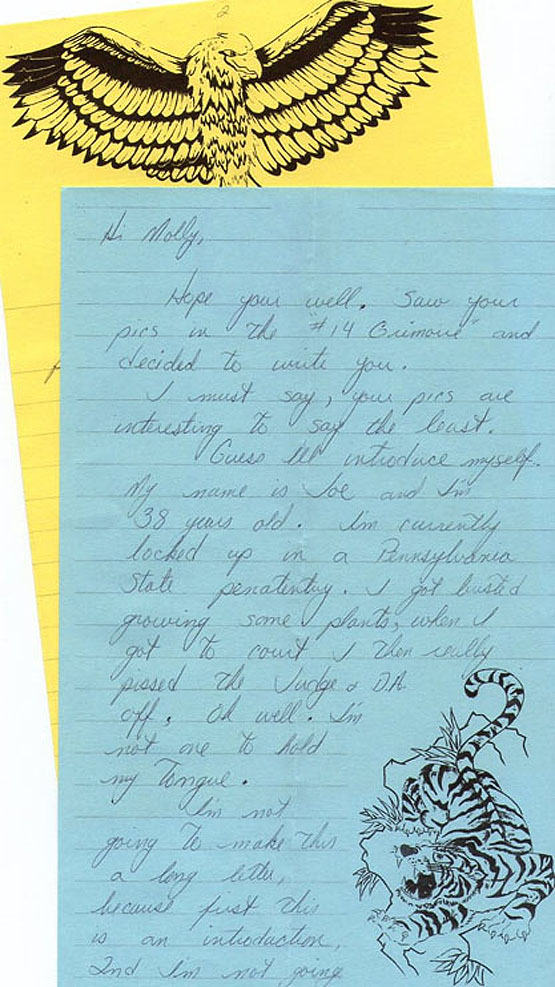 2
Hi Molly,
Hope your well. Saw your
pics in the "#14 Grimoire" and
decided to write you.
I must say, your pics are
interesting to say the least.
Guess I'll introduce myself.
My name is Joe and I'm
38 years old. I'm currently
locked up in a Pennsylvania
State penatentiry. I got busted
growing some plants, when I
got to court I then really
pissed the Judge & D.A.
off. Oh well. I'm
not one to hold
my Tongue.
I'm not
going to make this
a long letter,
because first this
is an introduction,
2nd I'm not going